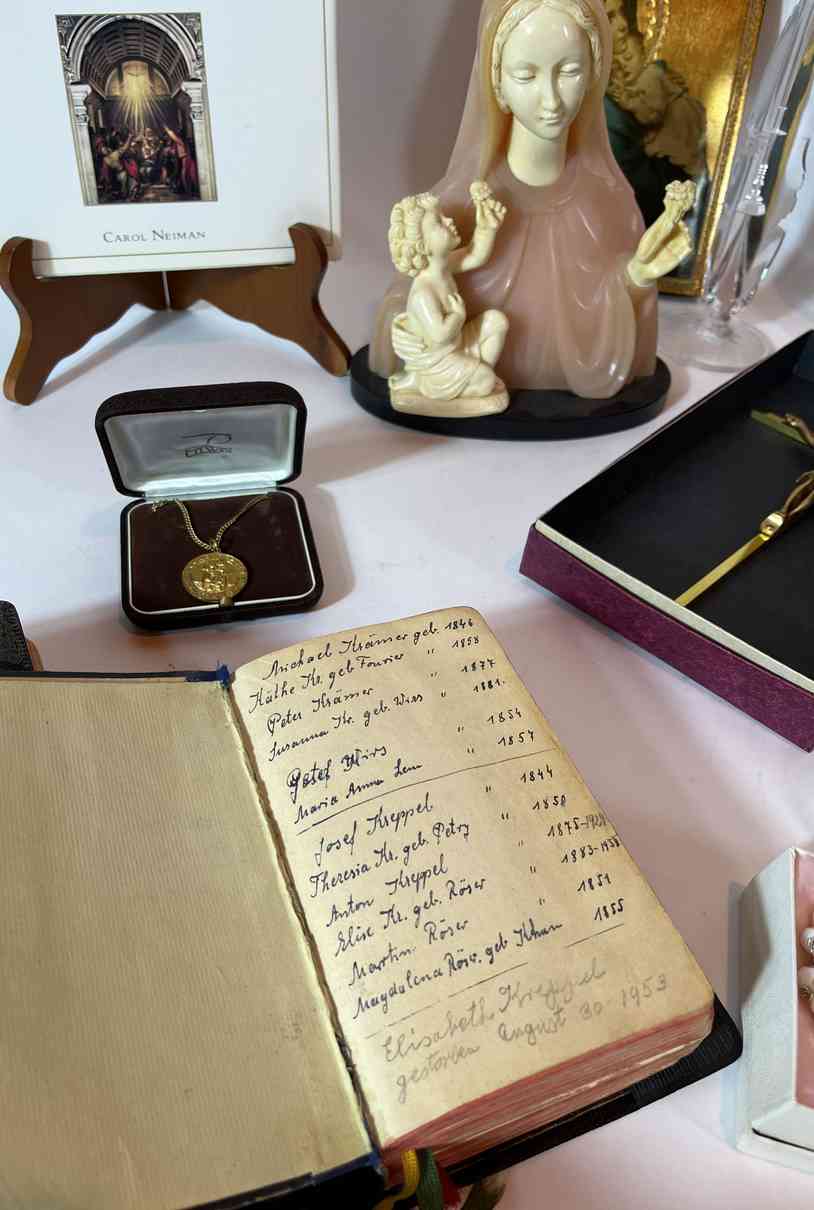 CAROL NEIMAN
Michael Krämer geb. 1846
Käthe Kr. geb Fourier " 1858
Peter Krämer 1877
Susanna Kr. geb. Wirs " 1881.
Josef Wirs " 1854
Maria Anna " 1857
Josef Kreppel " 1844
Theresia Kr. geb. Petry " 1850
Anton Kreppel 1875-
Elise Kr. geb. Röser " 1883-
Martin Röser " 1851
Magdalena Rös. geb 1855
Elisabeth
gestorben August 30 1953